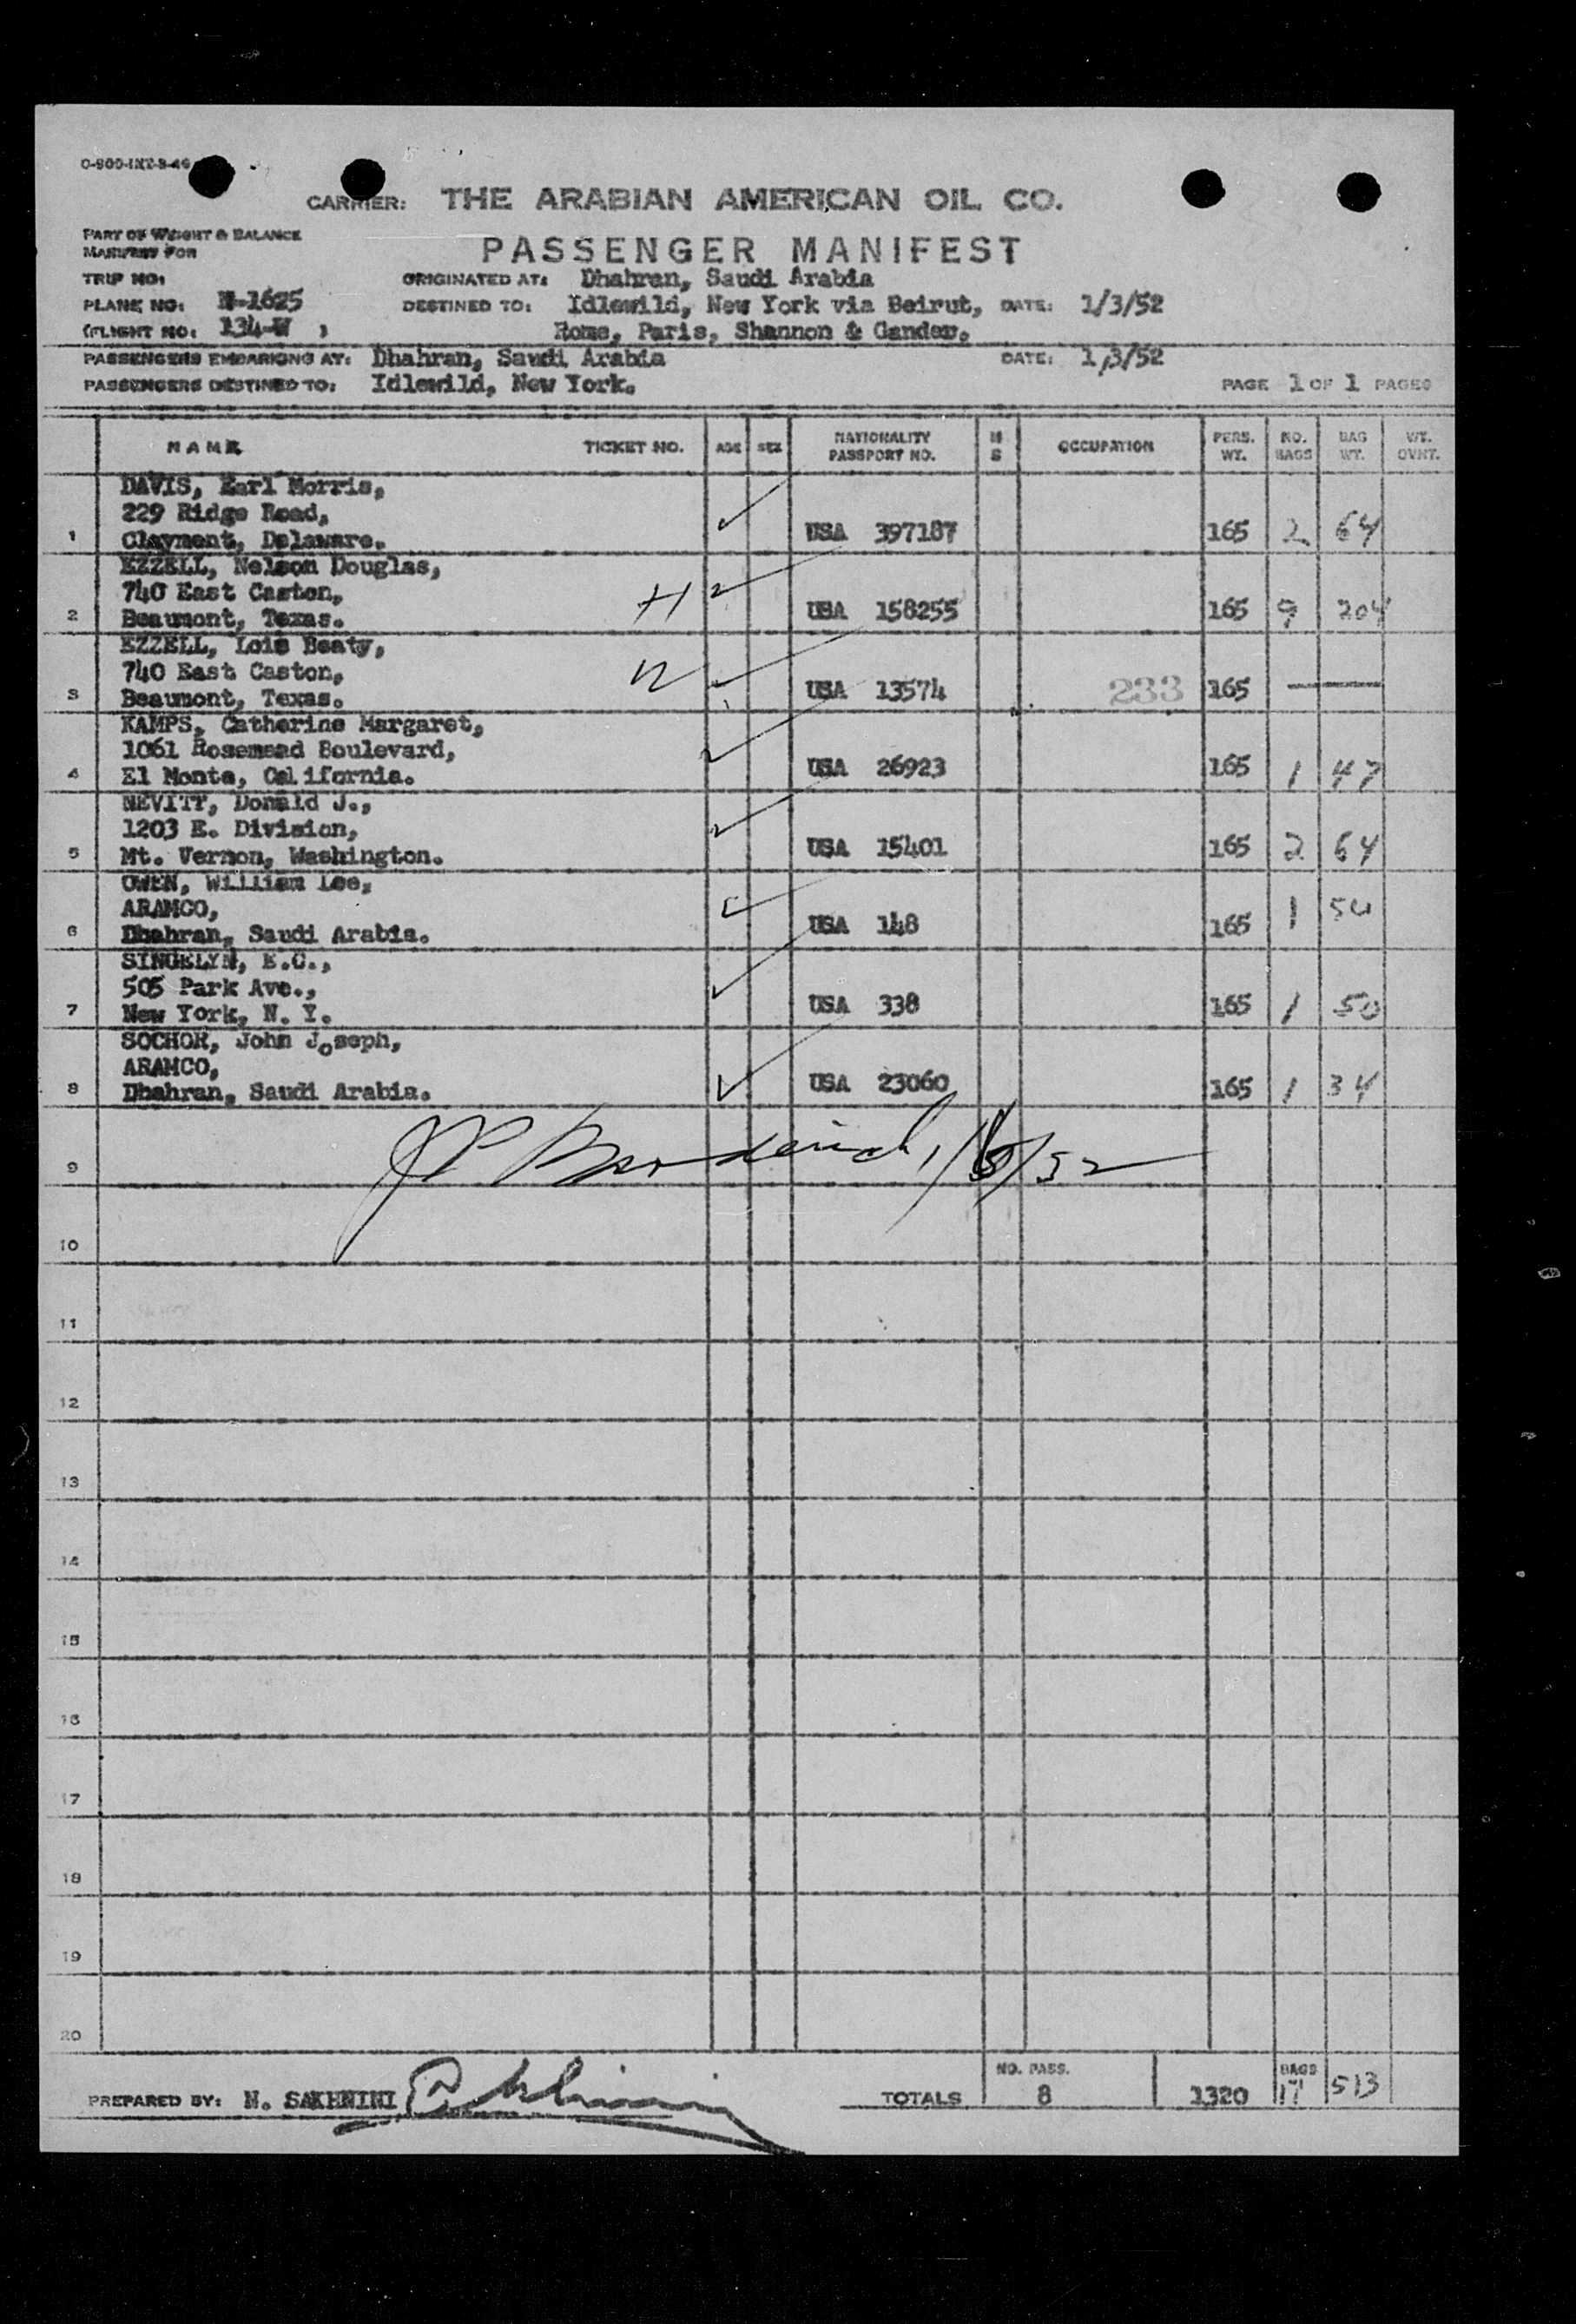 CARRIER: THE ARABIAN AMERICAN OIL CO.
PART OF WEIGHT & BALANCE
MANIFEST FOR
PASSENGER MANIFEST
TRIP NO:
ORIGINATED AT: Dhahran, Saudi Arabia
PLANE NO: N-1625
DESTINED TO: Idlewild, New York via Beirut, DATE: 1/3/52
(FLIGHT NO: 134-W )
Rome, Paris, Shannon & Gander.
PASSENGERS EMBARKING AT: Dhahran, Saudi Arabia DATE: 1/3/52
PASSENGERS DESTINED TO: Idlewild, New York. PAGE 1 OF 1 PAGES
NAME TICKET NO. AGE SEX NATIONALITY PASSPORT NO. M S OCCUPATION PERS. WT. NO. BAGS BAG WT. WT. OVHT.
DAVIS, Earl Morris,
229 Ridge Road,
1 Claymont, Delaware. USA 397187 165 2 64
EZZELL, Nelson Douglas,
740 East Caston, H
2 Beaumont, Texas. USA 158255 165 9 204
EZZELL, Lois Beaty,
740 East Caston, W
3 Beaumont, Texas. USA 13574 233 165
KAMPS, Catherine Margaret,
1061 Rosemead Boulevard,
4 El Monte, California. USA 26923 165 1 47
NEVITT, Donald J.,
1203 E. Division,
5 Mt. Vernon, Washington. USA 15401 165 2 64
OWEN, William Lee,
ARAMCO,
6 Dhahran, Saudi Arabia. USA 148 165 1 50
SINGELYN, E.C.,
505 Park Ave.,
7 New York, N. Y. USA 338 165 1 50
SOCHOR, John Joseph,
ARAMCO,
8 Dhahran, Saudi Arabia. USA 23060 165 1 34
9
10
11
12
13
14
15
16
17
18
19
20
PREPARED BY: N. SAKHNINI TOTALS NO. PASS. 8 1320 BAGS 17 513